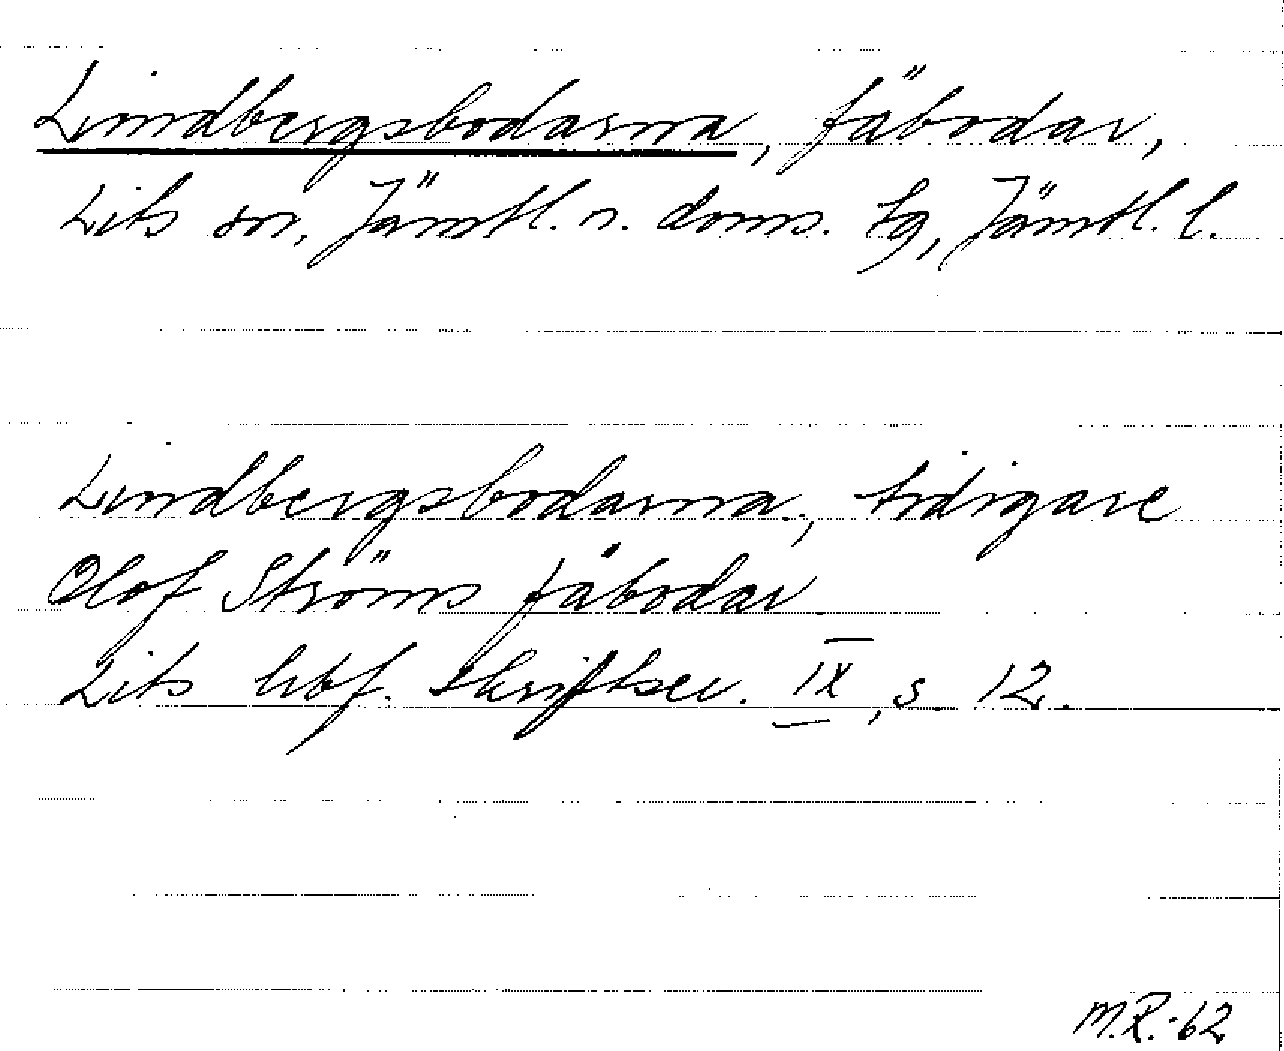 Lindbergsbodarna, fäbodar,
Lits sn, Jämtl. n. doms. tg, Jämtl. l.
Lindbergsbodarna, tidigare
Olof Ströms fäbodar
Lits hbf. skriftser. IX, s. 12.
M.R.-62